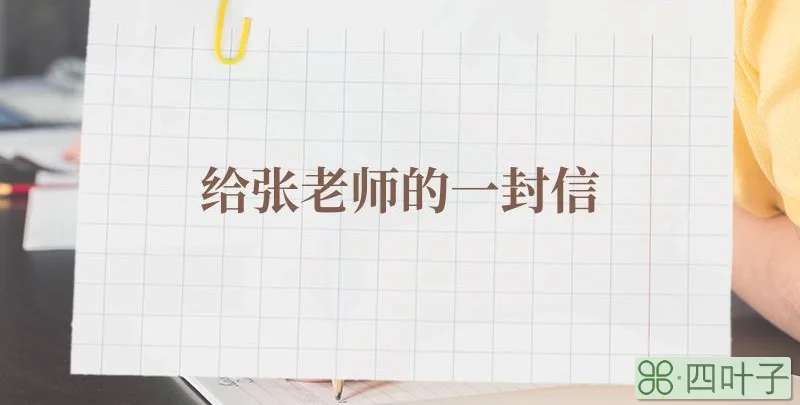 给张老师的一封信
四叶子